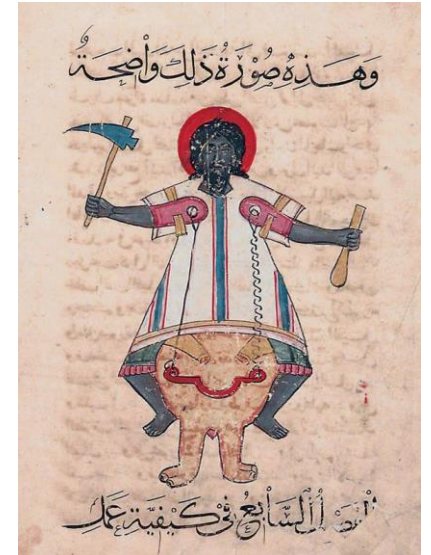 وَهَذِهِ صُورَةُ ذَلِكَ وَاضِحَةٌ
الفصل السَّابِعُ فِي كَيْفِيَّةِ عَمَلِ